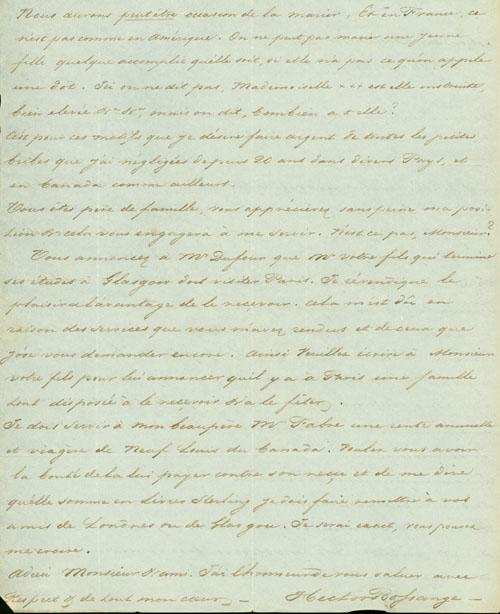 Nous aurons peut être occasion de la marier, Et en France, ce
n'est pas comme en Amérique. On ne peut pas marier une jeune
fille quelque accomplie qu'elle soit, si elle n'a pas ce qu'on appele
une dôt. Ici on ne dit pas, Mademoiselle xxx est elle instruite,
bien elevée &c &c, mais on dit, Combien a t elle?
C'est pour ces motifs que je désire faire argent de toutes les petites
bribes que j'ai négligées depuis 20 ans dans divers Pays, et
en Canada comme ailleurs.
Vous êtes père de famille, vous apprécierez sans peine ma posi-
tion & cela vous engagera à me servir. N'est ce pas, Monsieur?
Vous annoncez à Mr Dufour que Mr votre fils qui termine
ses études à Glasgow doit visiter Paris. Je révendique le
plaisir et l'avantage de le reçevoir. Cela m'est dû en
raison des services que vous m'avez rendus et de ceux que
j'ose vous demander encore. Ainsi Veuillez écrire à Monsieur
votre fils pour lui annoncer qu'il y a à Paris une famille
tout disposée à le reçevoir & a le fêter.
Je dois servir à mon beaupère Mr Fabre une rente annuelle
et viagere de Neuf Louis du Canada. Voulez vous avoir
la bonté de la lui payer contre son reçu et de me dire
qu'elle somme en Livres Sterling je dois faire remettre à vos
amis de Londres ou de Glasgow. Je serai exact, vous pouvez
me croire.
Adieu Monsieur & ami. J'ai l'honneur de vous saluer avec
Respect & de tout mon cœur, — Hector Bossange —